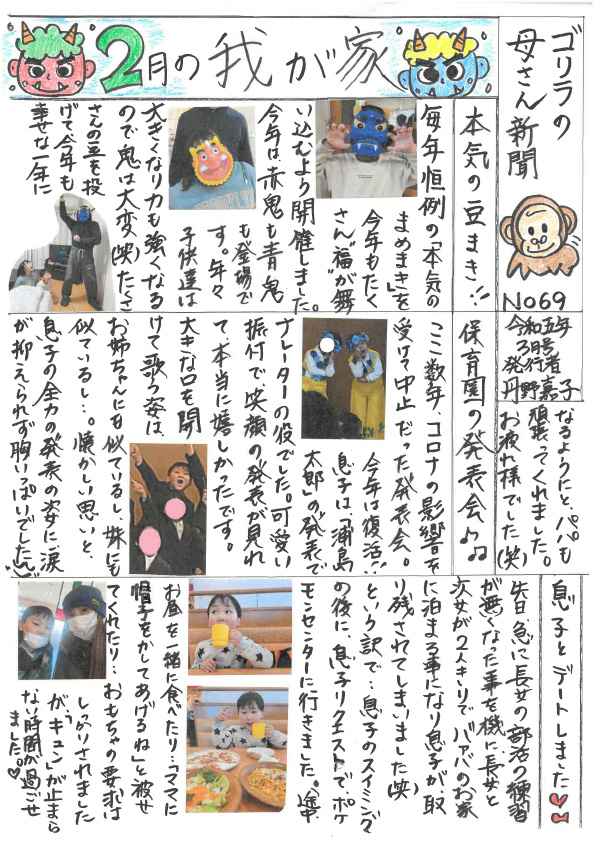 ゴリラの
母さん新聞
No69
令和五年
3月号
発行者
丹野嘉子
2月の我が家
本気の豆まき!!
毎年恒例の「本気の
まめまき」を
今年もたく
さん“福”が舞
い込むよう開催しました。
今年は、赤鬼も青鬼
も登場で
す。年々
子供達は
大きくなり力も強くなる
ので鬼は大変(笑)たくさ
さんの豆を投
げて今年も
幸せな一年に
なるようにと、パパも
頑張ってくれました。
お疲れ様でした(笑)
保育園の発表会♪♫
ここ数年、コロナの影響を
受けて中止だった発表会。
今年は復活!!
息子は、「浦島
太郎」の発表で
ナレーターの役でした。可愛い
振付で笑顔の発表が見れ
て、本当に嬉しかったです。
大きな口を開
けて歌う姿は、
お姉ちゃんにも似ているし、妹にも
似ているし…。懐かしい思いと、
息子の全力の発表の姿に涙
が抑えられず胸いっぱいでした
息子とデートしました
先日、急に長女の部活の練習
が無くなった事を機に、長女と
次女が2人きりでバァバのお家
に泊まる事になり息子が取
り残されてしまいました(笑)
という訳で…息子のスイミング
の後に、息子リクエストでポケ
モンセンターに行きました。途中、
お昼を一緒に食べたり…「ママに
帽子をかしてあげるね」と被せ
てくれたり…おもちゃの要求は
しっかりされました
が、“キュン”が止まら
ない時間が過ごせ
ました。♡